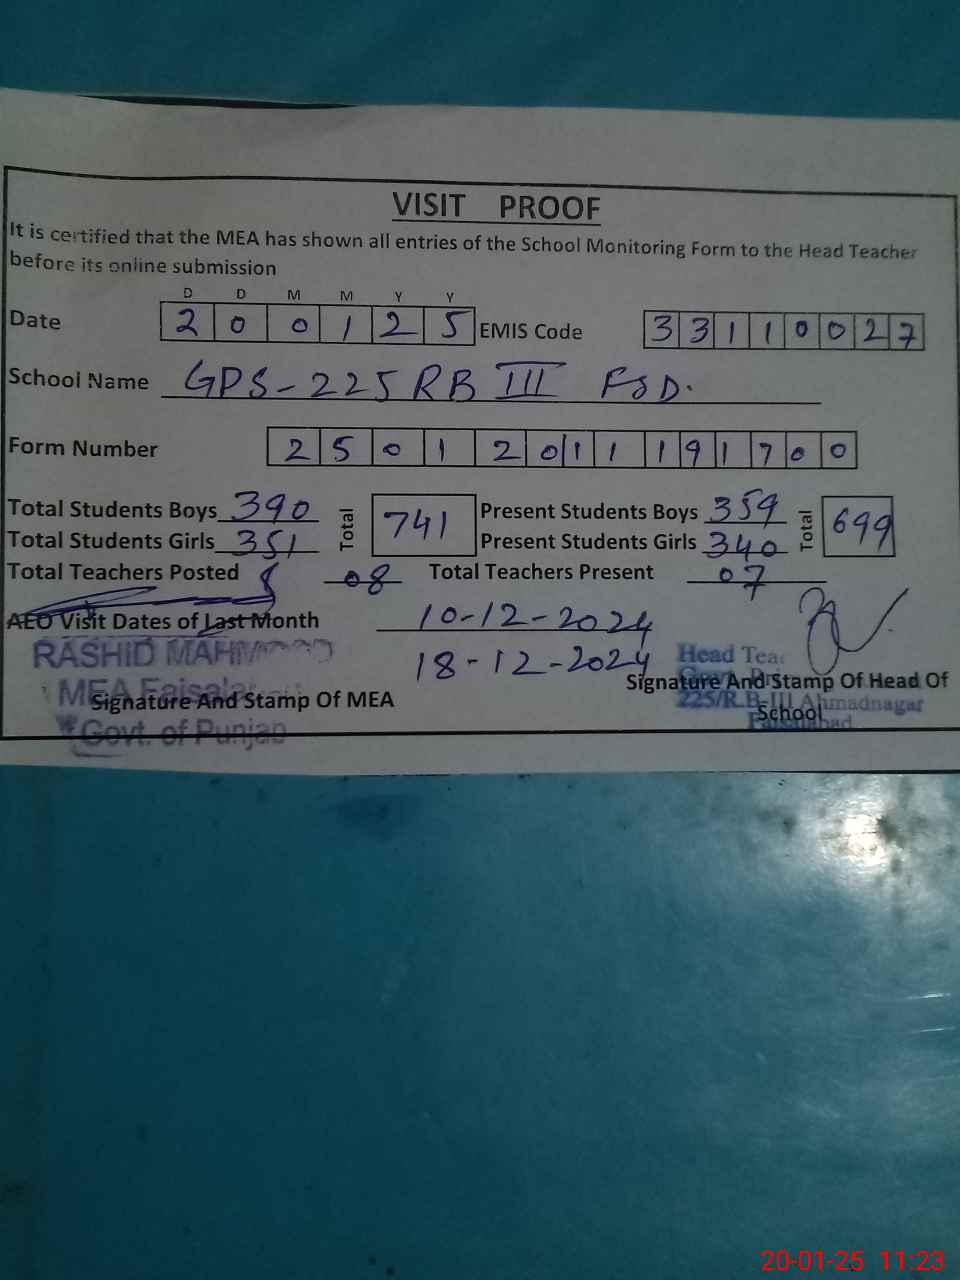 VISIT PROOF
It is certified that the MEA has shown all entries of the School Monitoring Form to the Head Teacher
before its online submission
D D M M Y Y
Date 2 0 0 1 2 5 EMIS Code 3 3 1 1 0 0 2 7
School Name GPS-225 RB III FSD.
Form Number 2 5 0 1 2 0 1 1 1 9 1 7 0 0
Total Students Boys 390 Total 741 Present Students Boys 359 Total 699
Total Students Girls 351 Present Students Girls 340
Total Teachers Posted 08 Total Teachers Present 07
AEO Visit Dates of Last Month 10-12-2024
18-12-2024
RASHID MAHMOOD
MEA Faisalabad
Govt. of Punjab
Signature And Stamp Of MEA
Head
225/R.B-III Ahmadnagar
Faisalabad
Signature And Stamp Of Head Of
School
20-01-25 11:23